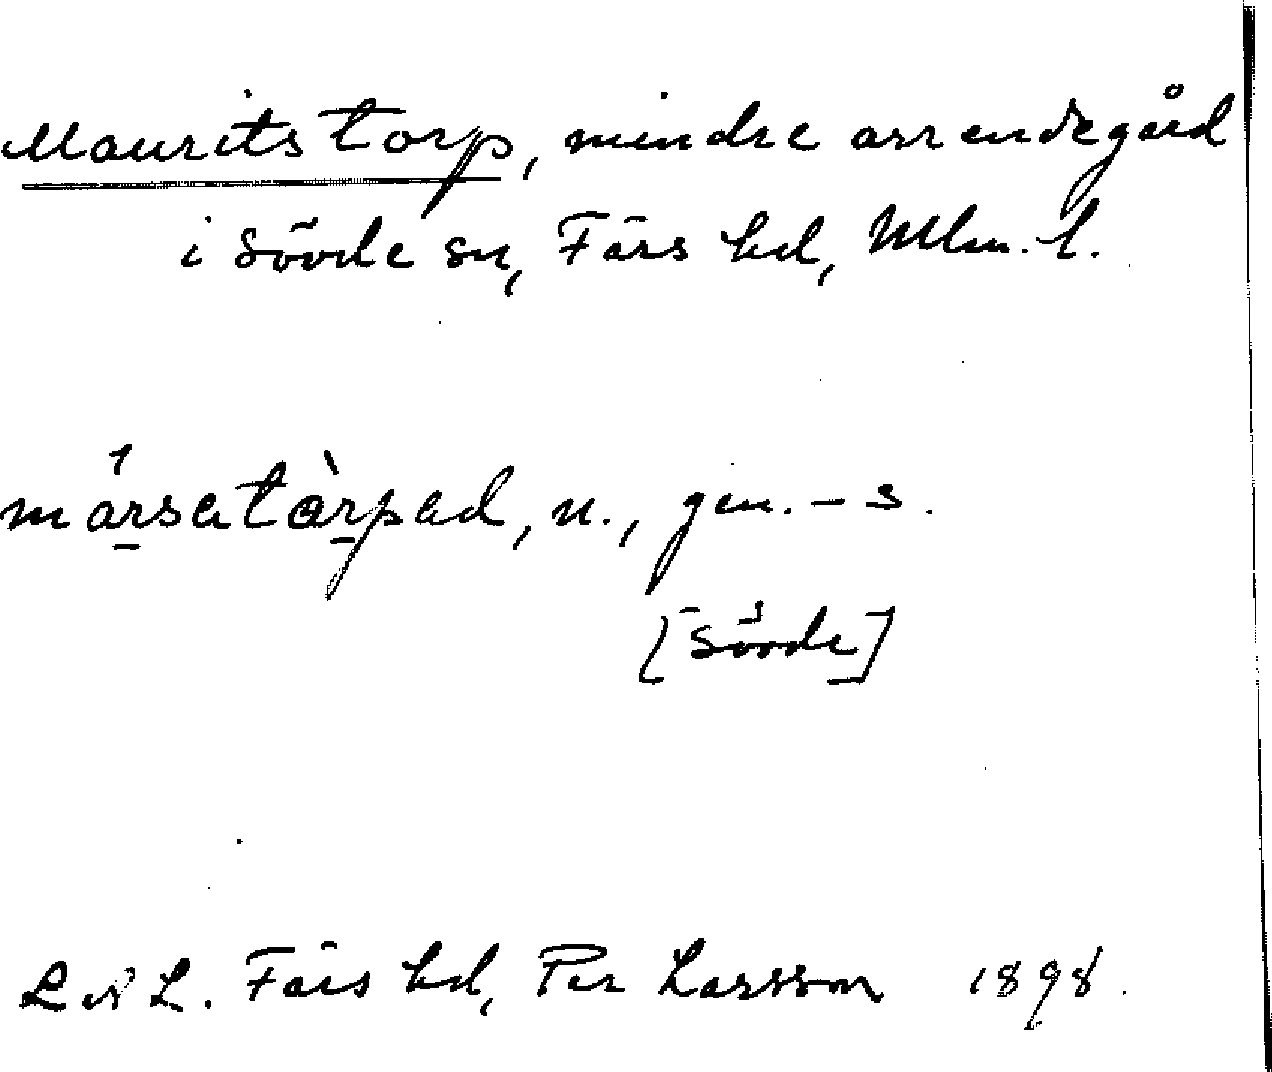 Mauritstorp, mindre arrendegård
i Sövde sn, Färs hd, Mlm. l.
mårsatårpad, n., gen. – s.
[Sövde]
LNL. Färs hd, Per Larsson 1898.